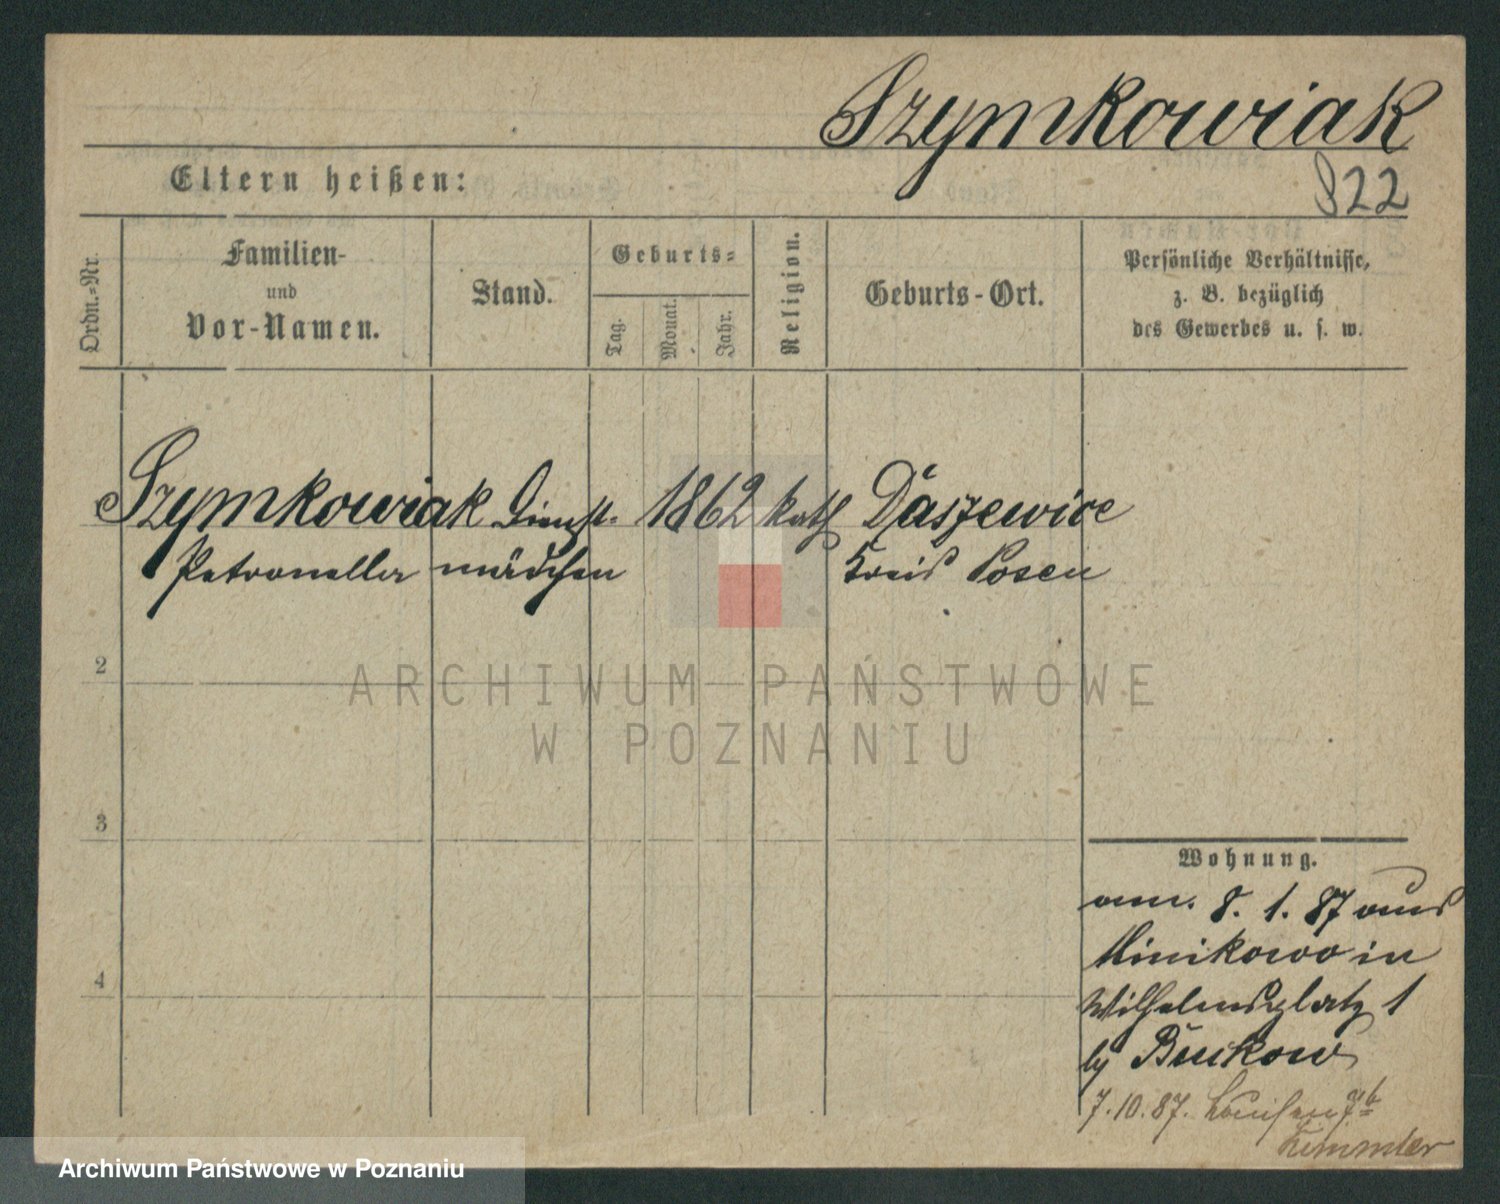 Szymkowiak
Eltern heißen:
822
Ordn.=Nr.
Familien-
und
Vor-Namen.
Stand.
Geburts=
Tag.
Monat.
Jahr.
Religion.
Geburts-Ort.
Persönliche Verhältnisse,
z. B. bezüglich
des Gewerbes u. s. w.
Szymkowiak Dienst- 1862 kath Daszewice
Petronella mädchen Kreis Posen
2
ARCHIWUM PAŃSTWOWE
W POZNANIU
3
Wohnung.
am. 8. 1. 87 aus
Minikowo in
4
Wilhelmsplatz 1
by Bukow
7.10.87. Louisen
Archiwum Państwowe w Poznaniu